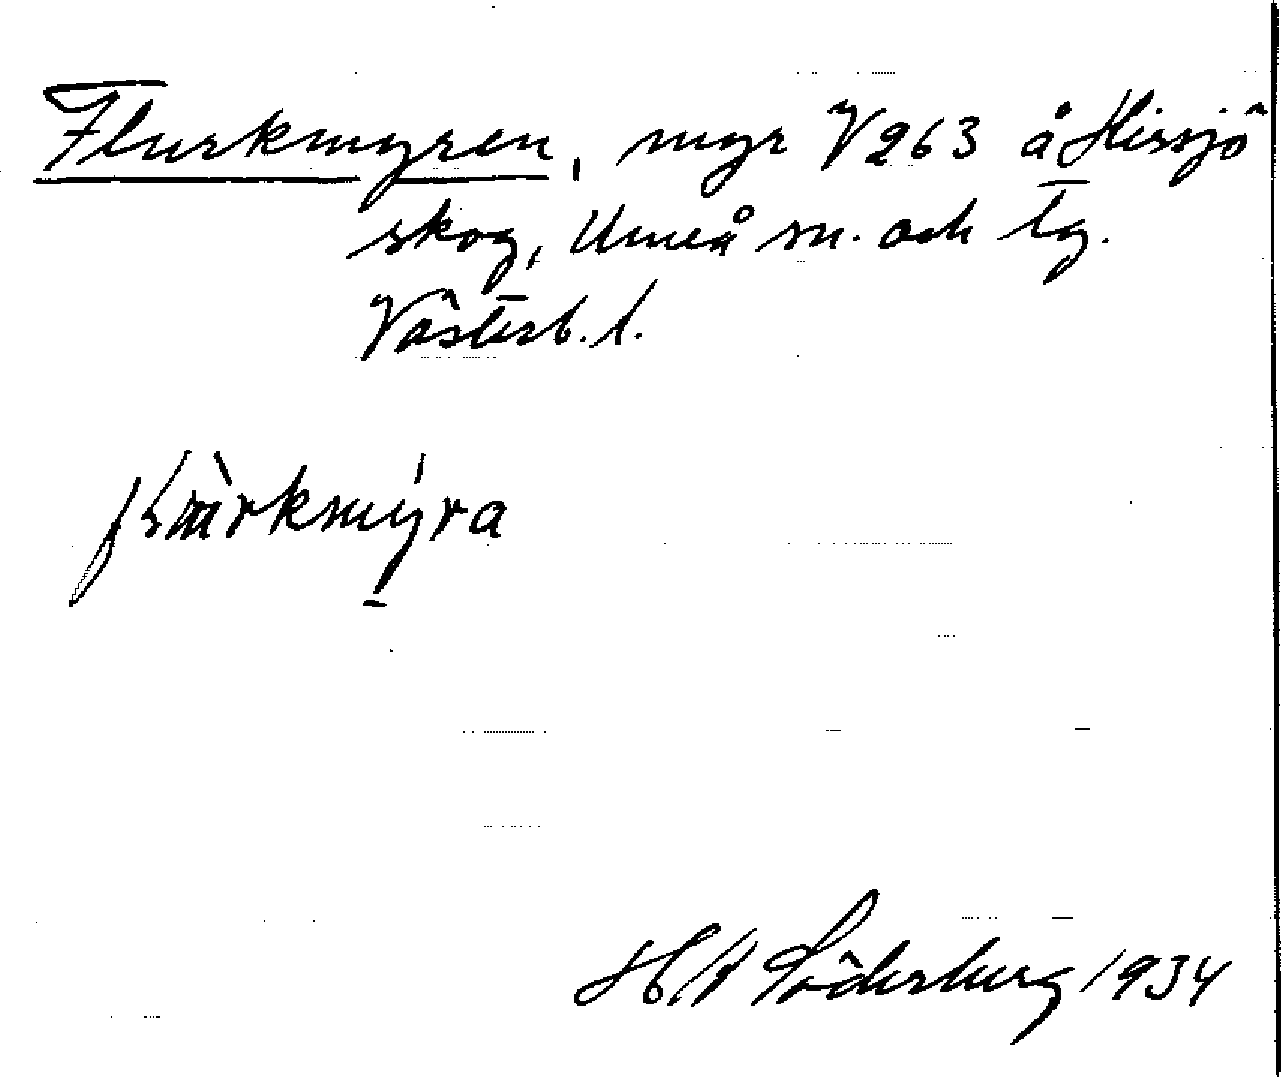 Flurkmyren, myr V 263 å Hissjö
skog, Umeå sn. och tg.
Västerb. l.
H A Söderberg 1934